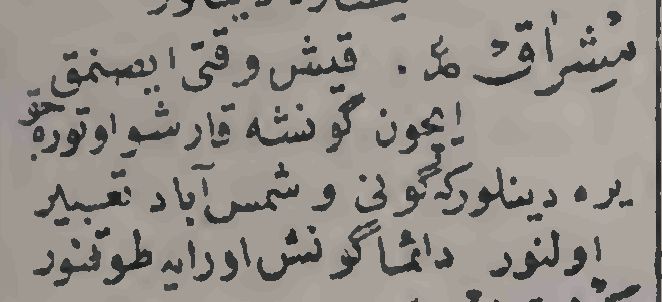 مشراق ع. قيش وقتى ايصنمق
ايچون گونشه قارشو اوتوره جق
يره دينلور كه گونى و شمس آباد تعبير
اولنور دائما گونش اورايه طوقنور